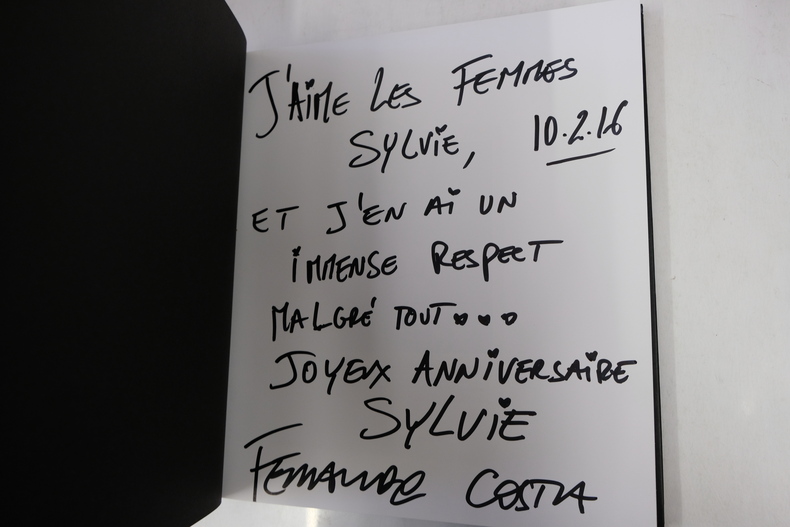 J'AiME LES FEMMES
SYLViE, 10.2.16
ET J'EN Ai UN
iMMENSE RESPECT
MALGRÉ TOUT...
JOYEUX ANNiVERSAiRE
SYLViE
COSTA